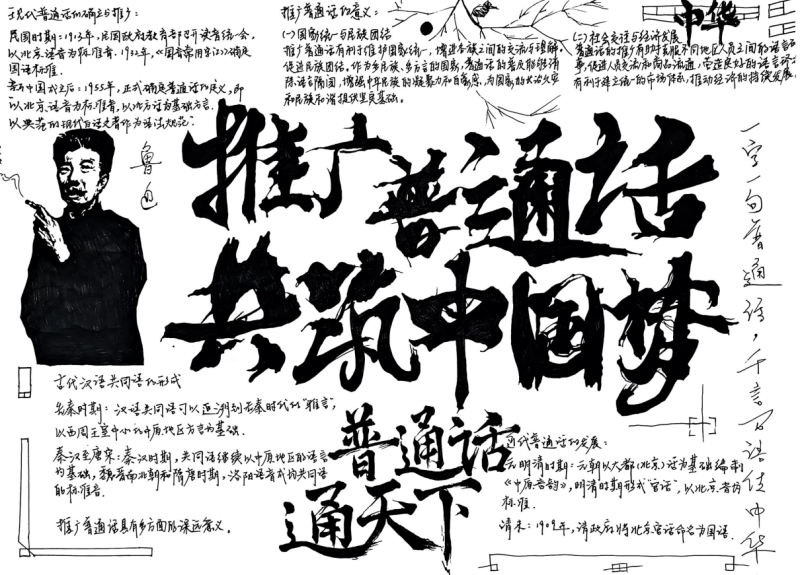 现代普通话的确立与推广:
民国时期:1913年,民国政府教育部召开读音统一会,
以北京语音为标准音。1932年,《国音常用字汇》确定
国语标准。
新中国成立后:1955年,正式确定普通话的定义,即
以北京语音为标准音,以北方话为基础方言,
以典范的现代白话文著作为语法规范。
推广普通话的意义:
(一)国家统一与民族团结
推广普通话有利于维护国家统一,增进各族之间的交流与理解,
促进民族团结。作为多民族、多方言的国家,普通话的普及能够消
除语言隔阂,增强中华民族的凝聚力和自豪感,为国家的长治久安
和民族和谐提供坚实基础。
中华
(二)社会交往与经济发展
普通话的推广有助于克服不同地区人员之间的语言
事,促进人员交流和商品流通,营造良好的语言环
有利于建立统一的市场体系,推动经济的持续发展
鲁迅
推广普通话
共筑中国梦
一字一句普通话,千言万语传中华
古代汉语共同语的形成
先秦时期:汉语共同语可以追溯到先秦时代的“雅言”,
以西周王室中心的中原地区方言为基础。
秦汉至唐宋:秦汉时期,共同语继续以中原地区的语言
为基础,魏晋南北朝和隋唐时期,洛阳语音成为共同语
的标准音。
推广普通话具有多方面的深远意义。
普通话
通天下
近代普通话的发展:
元明清时期:元朝以大都(北京)话为基础编制
《中原音韵》,明清时期形成“官话”,以北京音为
标准。
清末:1909年,清政府将北京官话命名为国语。